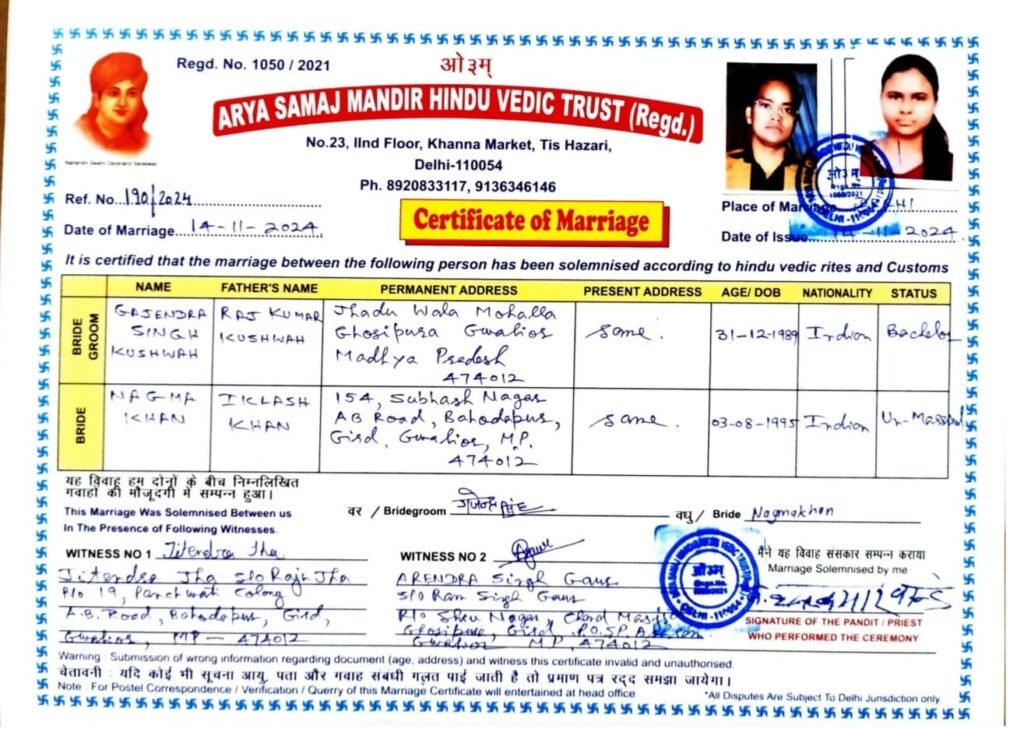 Regd. No. 1050 / 2021
ओ३म्
ARYA SAMAJ MANDIR HINDU VEDIC TRUST (Regd.)
No.23, IInd Floor, Khanna Market, Tis Hazari,
Delhi-110054
Ph. 8920833117, 9136346146
Maharishi Swami Dayanand Saraswati
Ref. No. 190/2024
Certificate of Marriage
Place of Marriage DELHI
Date of Marriage 14-11-2024
Date of Issue 14-11-2024
It is certified that the marriage between the following person has been solemnised according to hindu vedic rites and Customs
NAME FATHER'S NAME PERMANENT ADDRESS PRESENT ADDRESS AGE/ DOB NATIONALITY STATUS
BRIDE GROOM
GAJENDRA SINGH KUSHWAH
RAJ KUMAR KUSHWAH
Jhadu Wala Mohalla
Ghosipura Gwalior
Madhya Pradesh
474012
Same.
31-12-1989
Indian
Bachelor
BRIDE
NAGMA KHAN
IKLASH KHAN
154, Subhash Nagar
AB Road, Bahodapur,
Gird, Gwalior, M.P.
474012
Same.
03-08-1995
Indian
Un-Married
यह विवाह हम दोनों के बीच निम्नलिखित
गवाहों की मौजूदगी में सम्पन्न हुआ।
This Marriage Was Solemnised Between us
In The Presence of Following Witnesses.
वर / Bridegroom
वधु / Bride Nagmakhan
WITNESS NO 1 Jitendra Jha
Jitendra Jha S/o Raju Jha
R/o 19, Panchwati Colony
A.B. Road, Bahodapur, Gird,
Gwalior, MP - 474012
WITNESS NO 2
ARENDRA Singh Gaur
S/o Ram Singh Gaur
R/o Shiv Nagar, Chand Masjid
Ghosipura, Gird, P.O.
Gwalior M.P. 474012
मैंने यह विवाह संसकार सम्पन्न कराया
Marriage Solemnised by me
SIGNATURE OF THE PANDIT / PRIEST
WHO PERFORMED THE CEREMONY
Warning : Submission of wrong information regarding document (age, address) and witness this certificate invalid and unauthorised.
चेतावनी : यदि कोई भी सूचना आयु, पता और गवाह संबंधी गलत पाई जाती है तो प्रमाण पत्र रद्द समझा जायेगा।
Note : For Postel Correspondence / Verification / Querry of this Marriage Certificate will entertained at head office
*All Disputes Are Subject To Delhi Junsdiction only